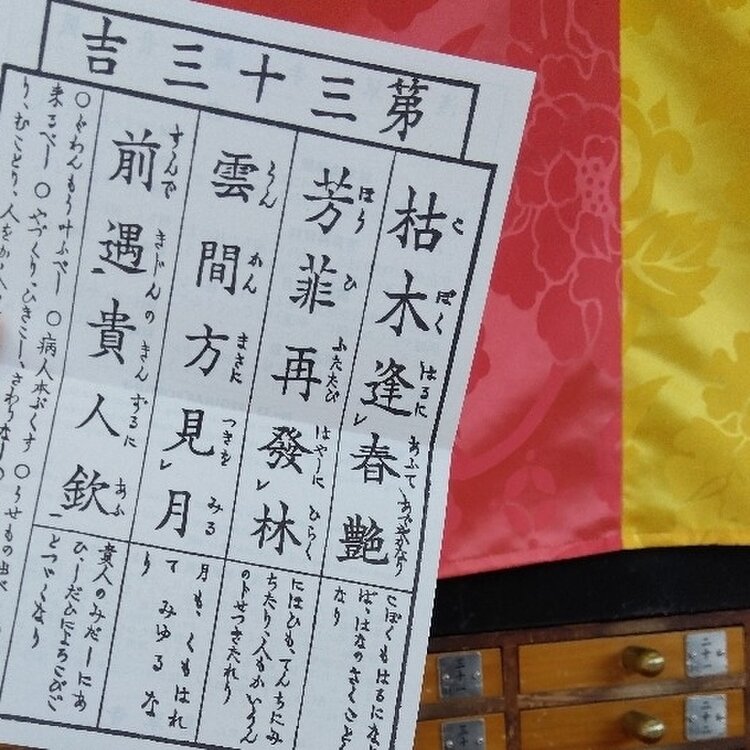 第三十三吉
枯木逢春艶
こぼく はるに あふて あでやかなり
芳菲再發林
はうひ ふたたび はやしに ひらく
雲間方見月
うんかん まさに つきを みる
前遇貴人欽
すすんで きじんの きんずるに あふ
こぼくもはるにな
ば、はなのさくごと
なり
にほひも、てんちにみ
ちたり、人もかいうん
の
月も、くもはれ
て みゆるな
り
貴人のみだしにあ
ひしだひによろこびご
とつゞくなり
○ぐわんもう叶ふべし ○病人本ぶくす ○うせもの出べ
来るべし ○やづくり、ひきこし、さわりなし
り、むことり、人をかゝへ
三十一
二十一
三十二